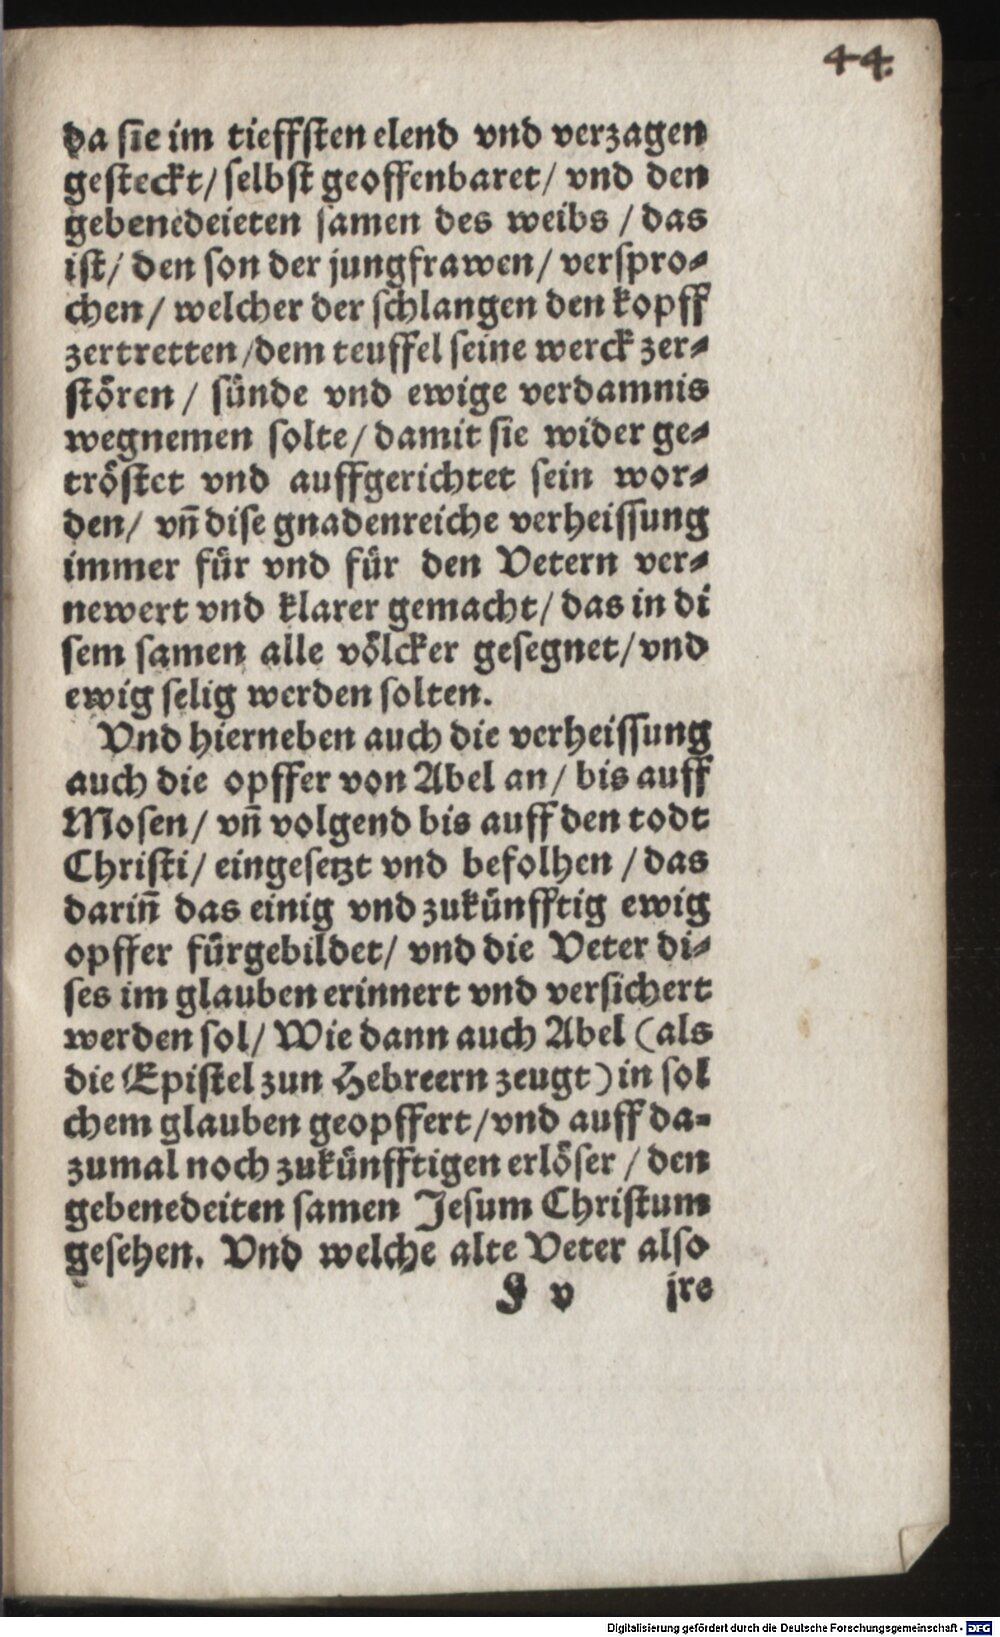 44.
da sie im tieffsten elend vnd verzagen
gesteckt/ selbst geoffenbaret/ vnd den
gebenedeieten samen des weibs / das
ist/ den son der jungfrawen/ verspro⸗
chen/ welcher der schlangen den kopff
zertretten /dem teuffel seine werck zer⸗
stören / sünde vnd ewige verdamnis
wegnemen solte/ damit sie wider ge⸗
tröstet vnd auffgerichtet sein wor⸗
den/ vñ dise gnadenreiche verheissung
immer für vnd für den Vetern ver⸗
newert vnd klarer gemacht/ das in di
sem samen alle völcker gesegnet/ vnd
ewig selig werden solten.
Vnd hierneben auch die verheissung
auch die opffer von Abel an/ bis auff
Mosen/ vñ volgend bis auff den todt
Christi/ eingesetzt vnd befolhen / das
dariñ das einig vnd zukünfftig ewig
opffer fürgebildet/ vnd die Veter di⸗
ses im glauben erinnert vnd versichert
werden sol/ Wie dann auch Abel (als
die Epistel zun Hebreern zeugt) in sol
chem glauben geopffert /vnd auff da⸗
zumal noch zukünfftigen erlöser / den
gebenedeiten samen Jesum Christum
gesehen. Vnd welche alte Veter also
F v jre
Digitalisierung gefördert durch die Deutsche Forschungsgemeinschaft - DFG